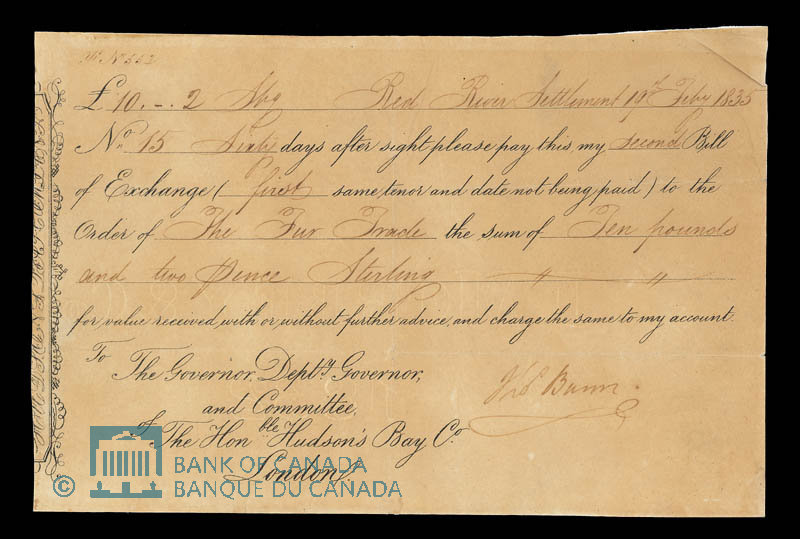 No 552
£ 10 . - . 2 Stg Red River Settlement 19th Feby 1835
No. 15 Sixty days after sight please pay this my second Bill
of Exchange ( first same tenor and date not being paid ) to the
Order of The Fur Trade the sum of Ten pounds
and two pence Sterling
for value received with or without further advice, and charge the same to my account.
To The Governor, Depty. Governor,
and Committee,
of The Honble Hudson's Bay Co.
London
Thos Bunn
© BANK OF CANADA
BANQUE DU CANADA